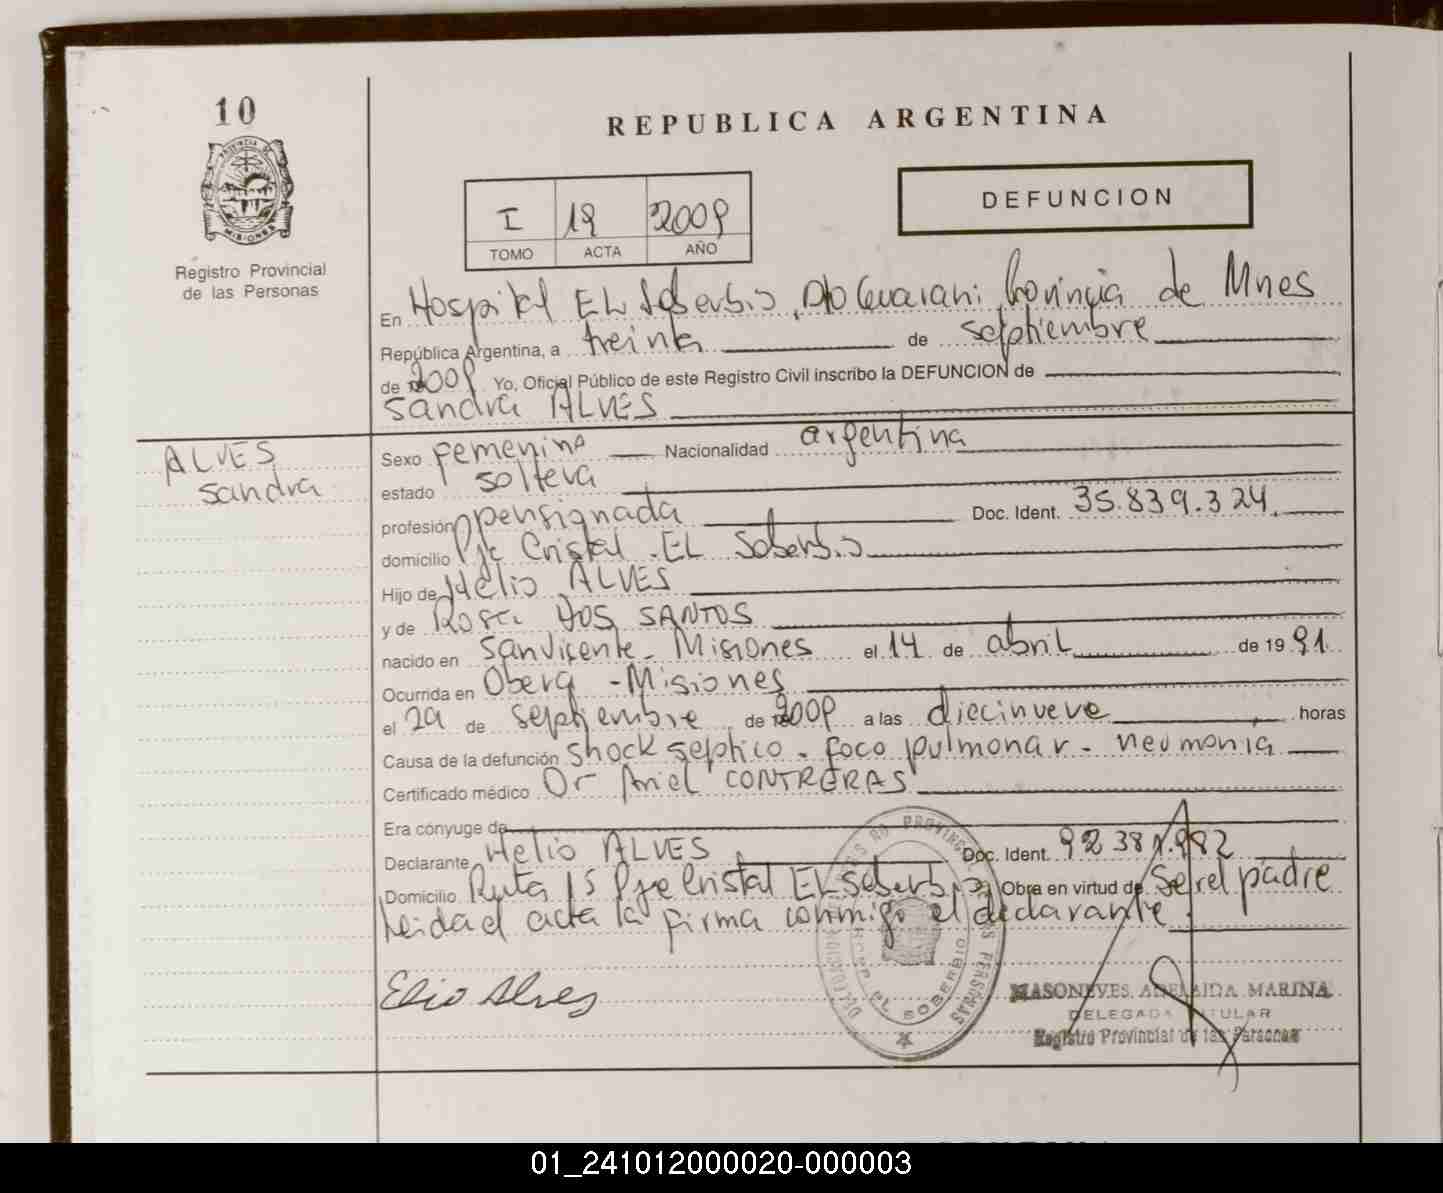 10
REPUBLICA ARGENTINA
DEFUNCION
I 19 2009
TOMO ACTA AÑO
PROVINCIA DE
MISIONES
Registro Provincial
de las Personas
En Hospital EL Soberbio, Dto Guarani Provincia de Mnes
República Argentina, a treinta de septiembre
de 2009 Yo, Oficial Público de este Registro Civil inscribo la DEFUNCION de
Sandra ALVES
ALVES
Sandra
Sexo femenino Nacionalidad argentina
estado soltera
profesión pensionada Doc. Ident. 35.839.324
domicilio Pje Cristal . EL Soberbio
Hijo de Helio ALVES
y de Rosa DOS SANTOS
nacido en San Vicente - Misiones el 14 de abril de 1991
Ocurrida en Obera - Misiones
el 29 de septiembre de 2009 a las diecinueve horas
Causa de la defunción shock septico - foco pulmonar - neumonia
Certificado médico Dr Ariel CONTRERAS
Era cónyuge de
Declarante Helio ALVES Doc. Ident.
Domicilio Ruta 15 Pje Cristal EL Soberbio Obra en virtud de ser el padre
leida el acta la firma conmigo el declarante.
Elio Alves
EL SOBERBIO
MASONEVES ADELAIDA MARINA
DELEGADA TITULAR
Registro Provincial de las Personas
01_241012000020-000003